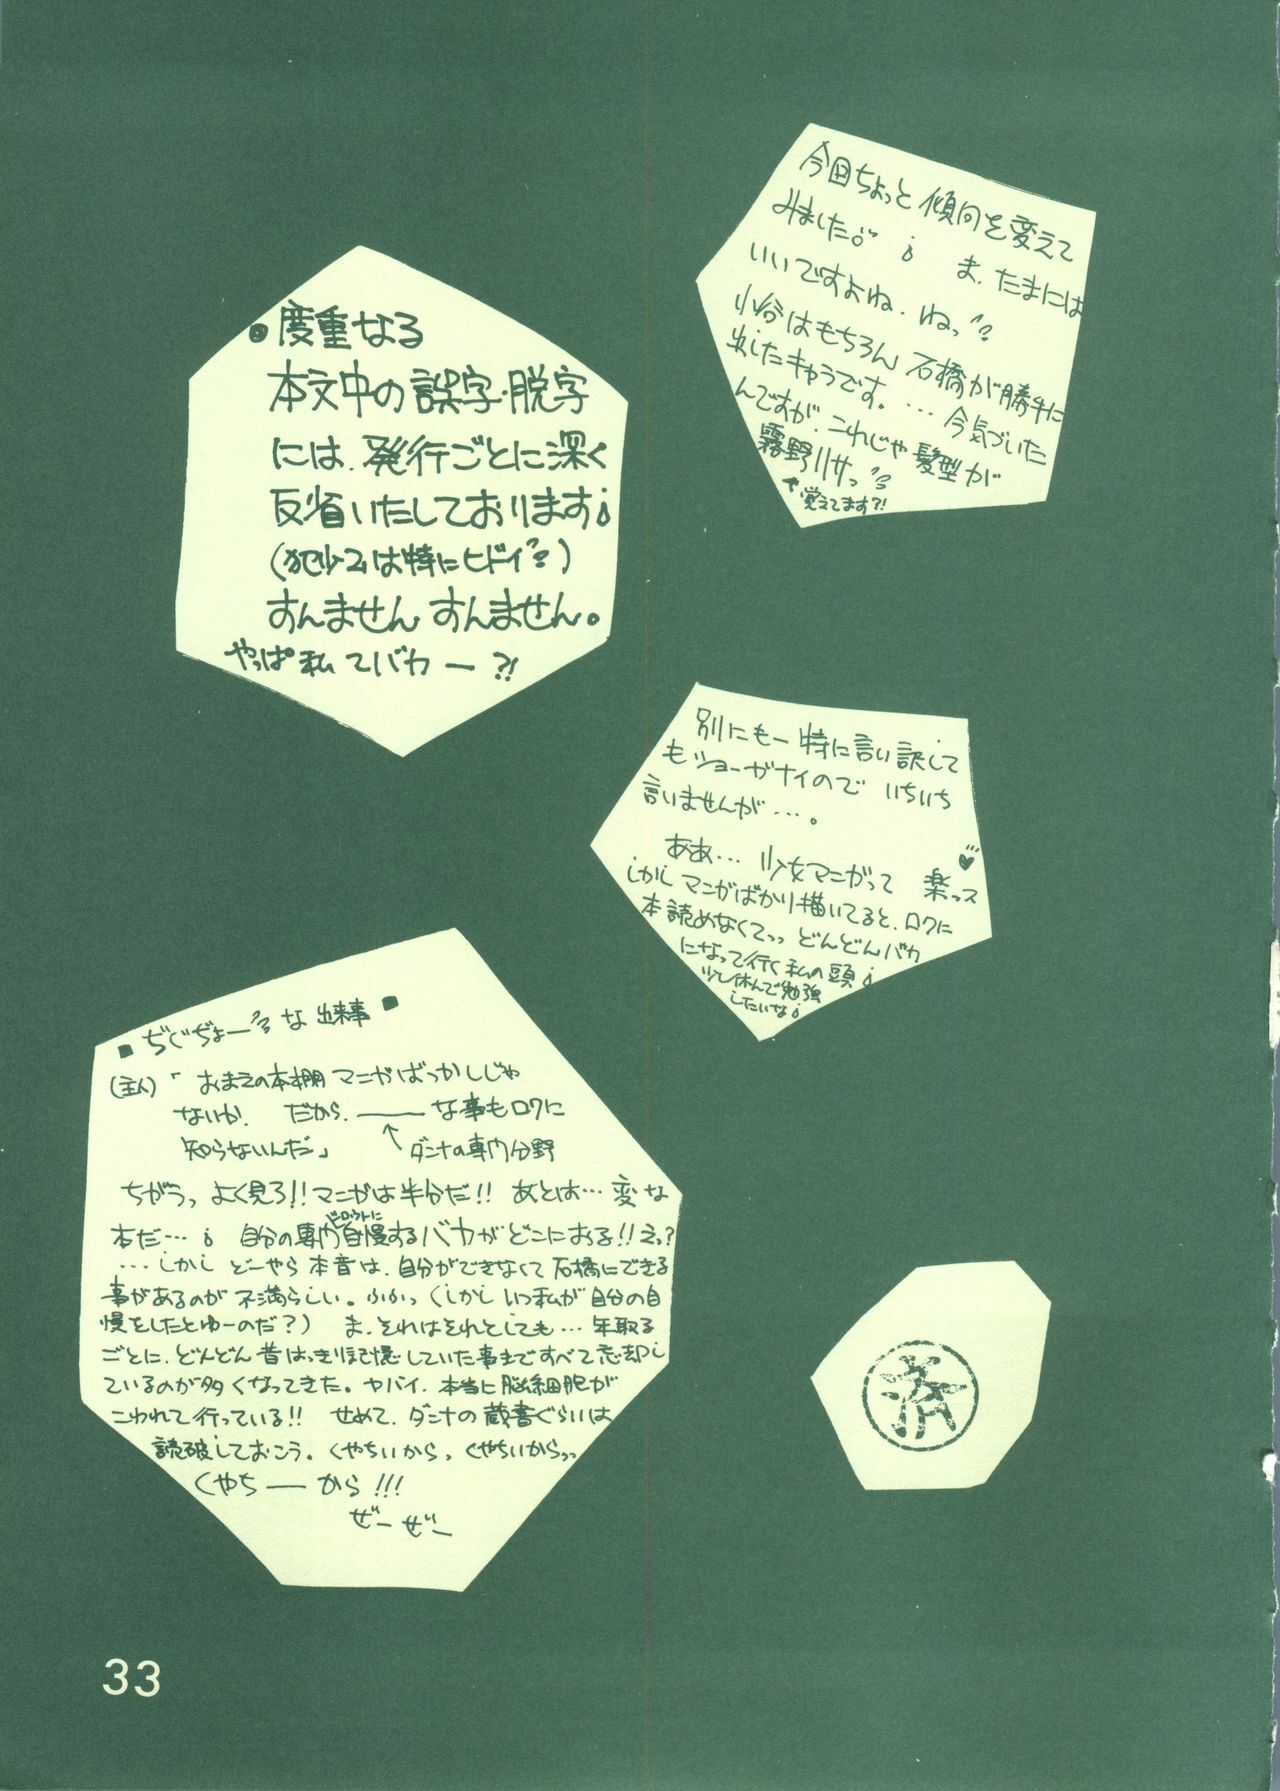 今回ちょっと傾向を変えて
みました。 ま、たまには
いいですよね、ねっ
小谷はもちろん 石橋が勝手に
出したキャラです。…今気づいた
んですが、これじゃ髪型が
霧野リサっ
↑覚えてます?!
●度重なる
本文中の誤字・脱字
には、発行ごとに深く
反省いたしております
(犯少2は特にヒドイ)
すんません すんません。
やっぱ私てバカー?!
別にもー特に言い訳して
もショーガナイので いちいち
言いませんが…。
ああ… 少女マンガって 楽っス♥
しかしマンガばかり描いてると、ロクに
本読めなくてっっ どんどんバカ
になって行く私の頭
少し休んで勉強
したいな
■ぢぐぢょーな出来事■
(主人)「おまえの本棚マンガばっかしじゃ
ないか。 だから、――な事もロクに
知らないんだ」 ↑ダンナの専門分野
ちがうっ よく見ろ!!マンガは半分だ!! あとは…変な
本だ… 自分の専門自慢するバカがどこにおる!!えっ?
シロウトに
…しかし どーやら本音は、自分ができなくて石橋にできる
事があるのが 不満らしい。ふふっ(しかし いつ私が自分の自
慢をしたとゆーのだ?) ま、それはそれとしても…年取る
ごとに、どんどん昔はっきり記憶していた事まですべて忘却し
ているのが多くなってきた。ヤバイ、本当に脳細胞が
こわれて行っている!! せめて、ダンナの蔵書ぐらいは
読破しておこう。くやちいから、くやちいからっっ
くやちーから!!!
ぜーぜー
済
33